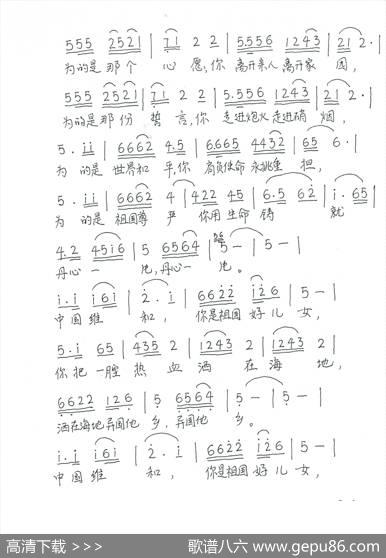 555 2521 | 11 2 2 | 5.556 1243 | 21 2. |
为的是那个 心愿,你 离开亲人离开家 园,
555 2521 | 11 2 2 | 5.556 1243 | 21 2. |
为的是那份 誓言,你 走进炮火走进硝 烟,
5. ii | 6662 4.5 | 6.665 4432 | 65 6. |
为 的是 世界和 平,你 肩负使命 永挑重 担,
5. ii | 6662 4 | 422 45 | 6.5 62 | i. 65 |
为 的是 祖国尊 严 你用生命 铸 就
4.2 45i6 | 5 6564 | 5 — | 5 — |
丹心一 片,丹心一 片。
i.i i6i | 2. i | 6622 i26 | 5 — |
中国维 和, 你是祖国好儿女,
5.i 65 | 435 2 | 1243 2 | 1243 2 |
你把一腔 热血 洒 在海 地,
6622 126 | 5 6564 | 5 — | 5 — |
洒在海地异国他 乡,异国他 乡。
i.i i6i | 2. i | 6622 i26 | 5 — |
中国维 和, 你是祖国好儿女,
高清下载 >>>
歌谱八六 www.gepu86.com